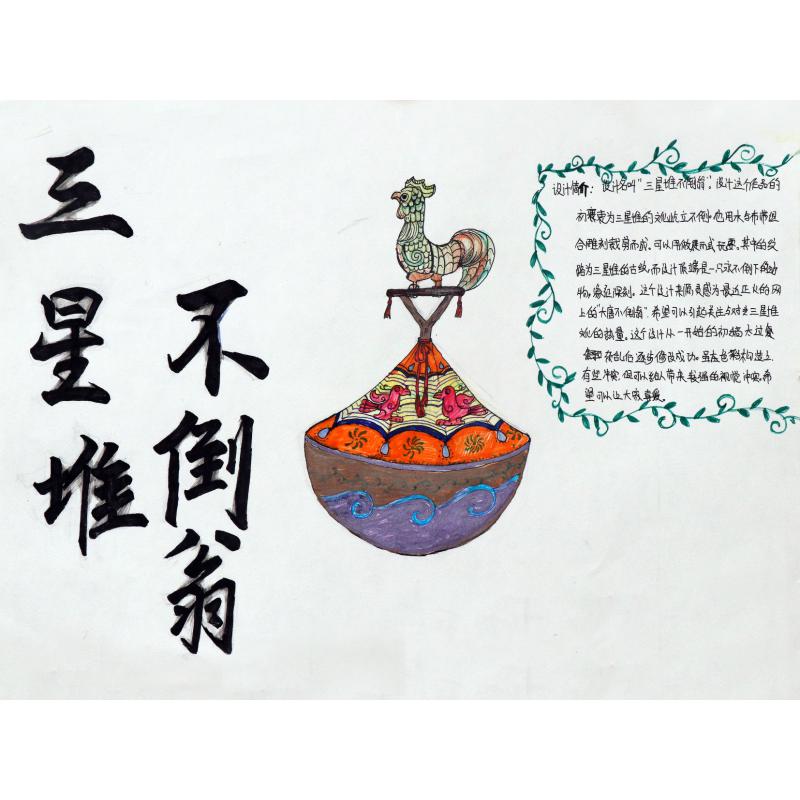 三星堆
不倒翁
设计简介：设计名叫“三星堆不倒翁”，设计这个作品的
初衷是为三星堆的文化屹立不倒，也用木与布带组
合雕刻裁剪而成，可以用做展示或玩器。其中的纹
饰为三星堆的古纹，而设计顶端是一只永不倒下的动
物，象征深刻。这个设计来源灵感为最近正火的网
上的“大唐不倒翁”，希望可以引起关注与对三星堆
的热量。这个设计从一开始的初稿太过复
杂乱后逐步修改成功。虽在色彩构造上
有些冲突，但可以给人带来较强的视觉冲突，希
望可以让大家喜爱。